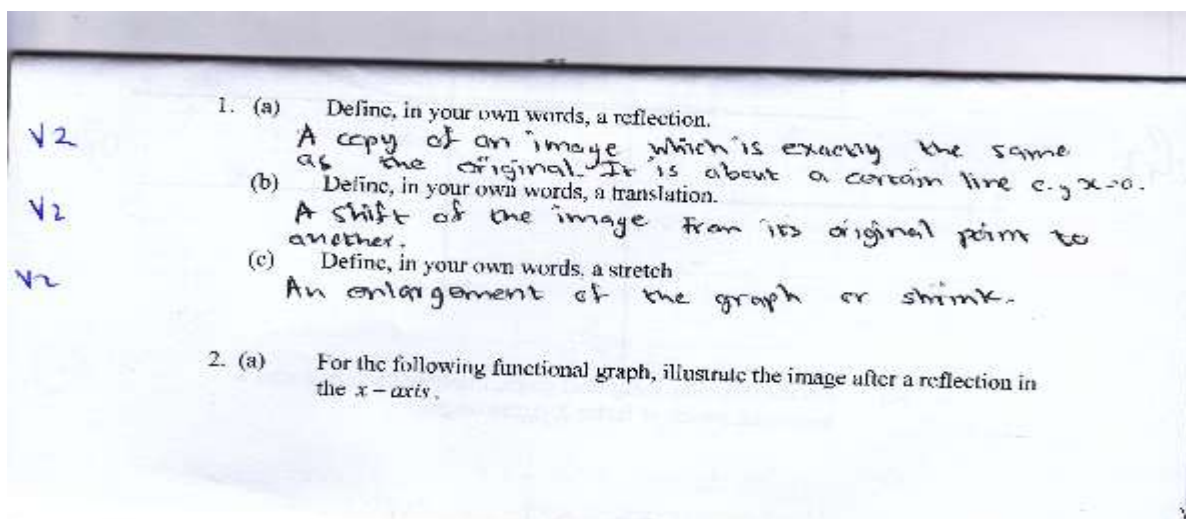 1. (a) Define, in your own words, a reflection.
√2 A copy of an image which is exactly the same
as the original. It is about a certain line e.g x=0.
(b) Define, in your own words, a translation.
√2 A shift of the image from its original point to
another.
(c) Define, in your own words, a stretch
√2 An enlargement of the graph or shrink.
2. (a) For the following functional graph, illustrate the image after a reflection in
the x – axis.